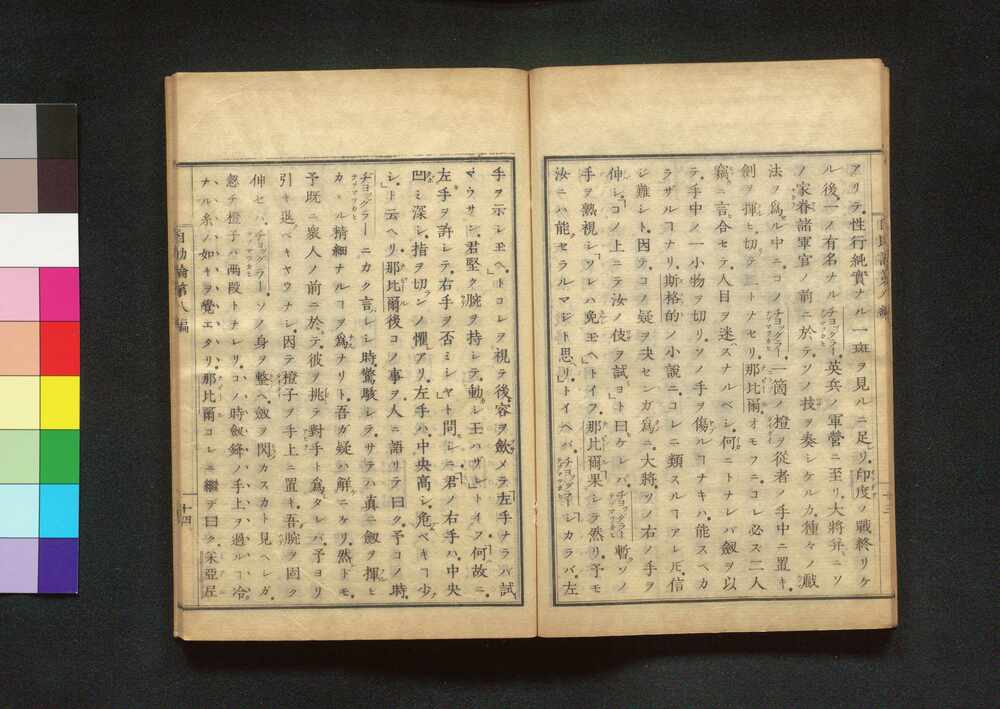 アリテ、性行純實ナル一斑ヲ見ルニ足レリ、印度ノ戰終リケ
ル後、一ノ有名ナル、チヨッグラー、英兵ノ軍營ニ至リ、大將并ニソ
ノ家眷諸軍官ノ前ニ於テ、ソノ技ヲ奏シケルカ、種々ノ戲
法ヲ爲ル中ニ、コノ、チヨッグラー、一箇ノ橙ヲ從者ノ手中ニ置キ、
劍ヲ揮ヒ切テ二トナセリ、那比爾、オモフニ、コレ必ス二人
竊ニ言合セテ、人目ヲ迷スナルベシ、何ニトナレバ、劍ヲ以
テ、手中ノ一小物ヲ切リ、ソノ手ヲ傷ルヿナキハ、能スベカ
ラザルヿナリ、斯格的ノ小說ニ、コレニ類スルヿアレ𪜈、信
シ難シト、因テ、コノ疑ヲ決センガ爲ニ、大將ソノ右ノ手ヲ
伸シ、コノ上ニテ汝ノ伎ヲ試ヨト曰ケレバ、チヨッグラー、暫ソノ
手ヲ熟視シ、ソレハ免モヘトイフ、那比爾果シテ然リ、予モ
汝ニハ能セラルマジト思リ、トイヘバ、チヨッグラー、シカラバ、左
手ヲ示シ玉ヘ、トコレヲ視テ後、容ヲ斂メ、左手ナラバ試
マウサン、君堅ク腕ヲ持シテ、動シ王ハザレトイフ、何故ニ、
左手ヲ許シテ、右手ヲ否ミシヤト問シニ、君ノ右手ハ、中央
凹ミ深シ、指ヲ切ランノ懼アリ、左手ハ、中央高シ、危ベキヿ少
シ、ト云ヘリ、那比爾後コノ事ヲ人ニ語リテ曰ク、予コノ時、
チヨッグラーニカク言レシ時、驚駭レテ、サテハ眞ニ劍ヲ揮ヒ
カヽル精細ナルヿヲ爲ナリト、吾ガ疑ハ解ニケリ、然トモ、
予既ニ衆人ノ前ニ於テ、彼ヲ挑テ對手ト爲タレバ、予ヨリ
引キ退ベキヤウナシ、因テ橙子ヲ手上ニ置キ、吾腕ヲ固ク
伸セハ、チヨッグラー、ソノ身ヲ整ヘ、劍ヲ閃カスカト見ヘシガ、
忽チ橙子ハ兩段トナレリ、コノ時劍鋒ノ手上ヲ過ルヿ、冷
ナル糸ノ如キヲ覺エタリ、那比爾コレニ繼デ曰ク、
自助論第八編
十四
十三